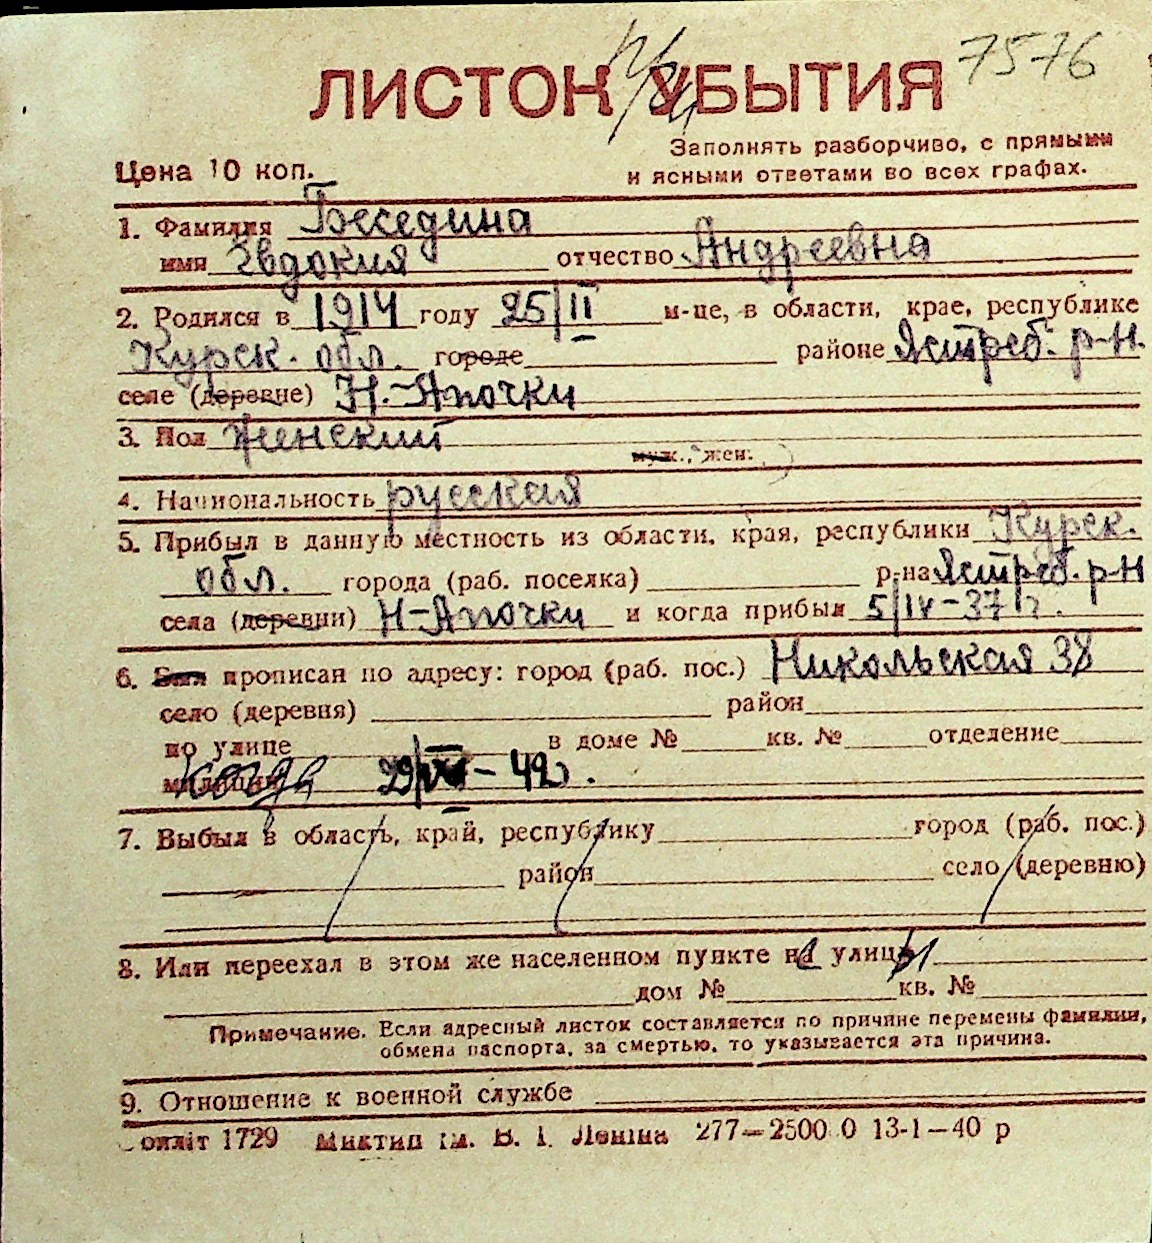 7576
ЛИСТОК УБЫТИЯ
Заполнять разборчиво, с прямыми
и ясными ответами во всех графах.
Цена 10 коп.
1. Фамилия Беседина
имя Евдокия отчество Андреевна
2. Родился в 1914 году 25/II м-це, в области, крае, республике
Курск. обл. городе районе Ястреб. р-н.
селе (деревне) Н.-Апочки
3. Пол Женский
муж., жен.
4. Национальность русская
5. Прибыл в данную местность из области, края, республики Курск.
обл. города (раб. поселка) р-на Ястреб. р-н
села (деревни) Н-Апочки и когда прибыл 5/IV-37 г.
6. Был прописан по адресу: город (раб. пос.) Никольская 38
село (деревня) район
по улице в доме № кв. № отделение
милиции когда 29/ - 42 .
7. Выбыл в область, край, республику город (раб. пос.)
район село (деревню)
8. Или переехал в этом же населенном пункте на улицы
дом № кв. №
Примечание. Если адресный листок составляется по причине перемены фамилии,
обмена паспорта, за смертью, то указывается эта причина.
9. Отношение к военной службе
1729 В. І. Леніна 277—2500 0 13-1—40 р